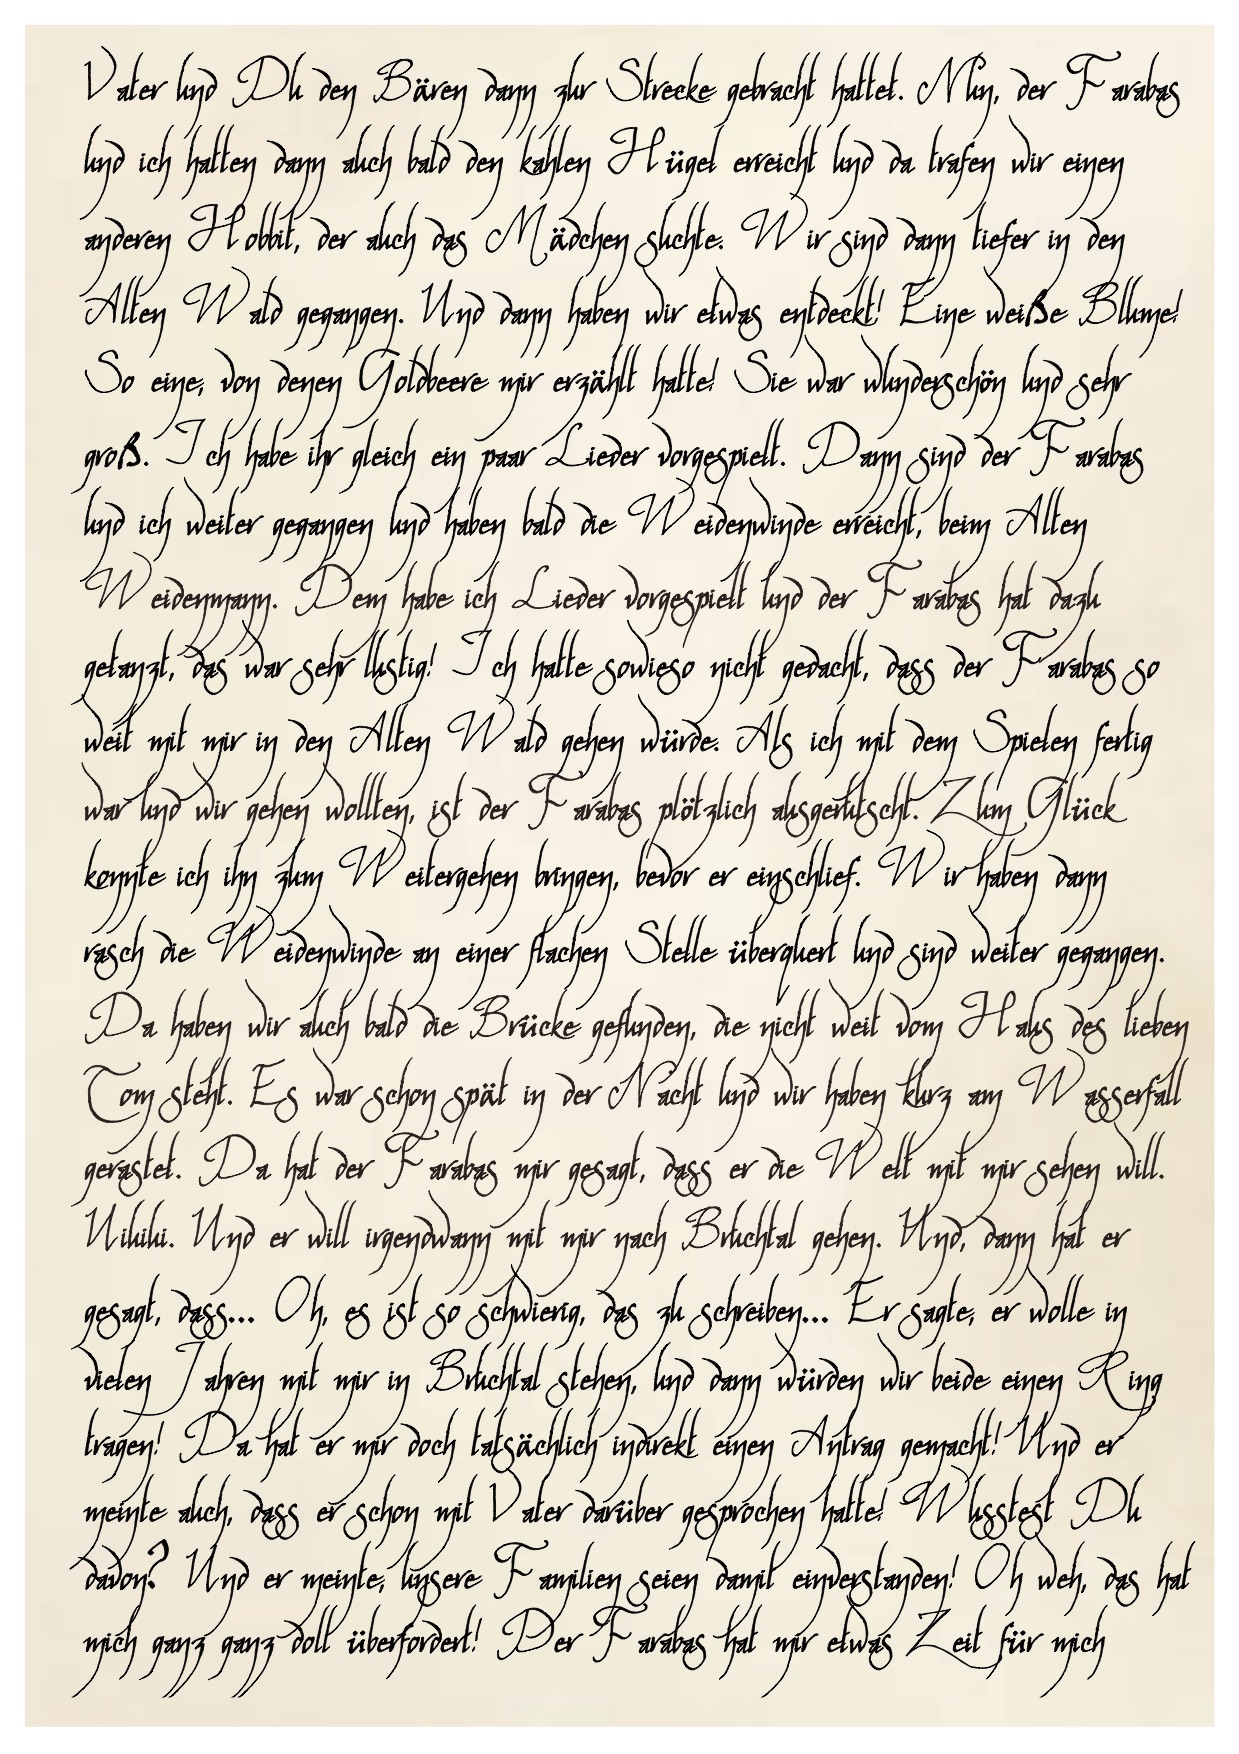 Vater und Du den Bären dann zur Strecke gebracht hattet. Nun, der Farabas
und ich hatten dann auch bald den kahlen Hügel erreicht und da trafen wir einen
anderen Hobbit, der auch das Mädchen suchte. Wir sind dann tiefer in den
Alten Wald gegangen. Und dann haben wir etwas entdeckt! Eine weiße Blume!
So eine, von denen Goldbeere mir erzählt hatte! Sie war wunderschön und sehr
groß. Ich habe ihr gleich ein paar Lieder vorgespielt. Dann sind der Farabas
und ich weiter gegangen und haben bald die Weidenwinde erreicht, beim Alten
Weidenmann. Dem habe ich Lieder vorgespielt und der Farabas hat dazu
getanzt, das war sehr lustig! Ich hatte sowieso nicht gedacht, dass der Farabas so
weit mit mir in den Alten Wald gehen würde. Als ich mit dem Spielen fertig
war und wir gehen wollten, ist der Farabas plötzlich ausgerutscht. Zum Glück
konnte ich ihn zum Weitergehen bringen, bevor er einschlief. Wir haben dann
rasch die Weidenwinde an einer flachen Stelle überquert und sind weiter gegangen.
Da haben wir auch bald die Brücke gefunden, die nicht weit vom Haus des lieben
Tom steht. Es war schon spät in der Nacht und wir haben kurz am Wasserfall
gerastet. Da hat der Farabas mir gesagt, dass er die Welt mit mir sehen will.
Uiuiui. Und er will irgendwann mit mir nach Bruchtal gehen. Und, dann hat er
gesagt, dass... Oh, es ist so schwierig, das zu schreiben... Er sagte, er wolle in
vielen Jahren mit mir in Bruchtal stehen, und dann würden wir beide einen Ring
tragen! Da hat er mir doch tatsächlich indirekt einen Antrag gemacht! Und er
meinte auch, dass er schon mit Vater darüber gesprochen hatte! Wusstest Du
davon? Und er meinte, unsere Familien seien damit einverstanden! Oh weh, das hat
mich ganz ganz doll überfordert! Der Farabas hat mir etwas Zeit für mich